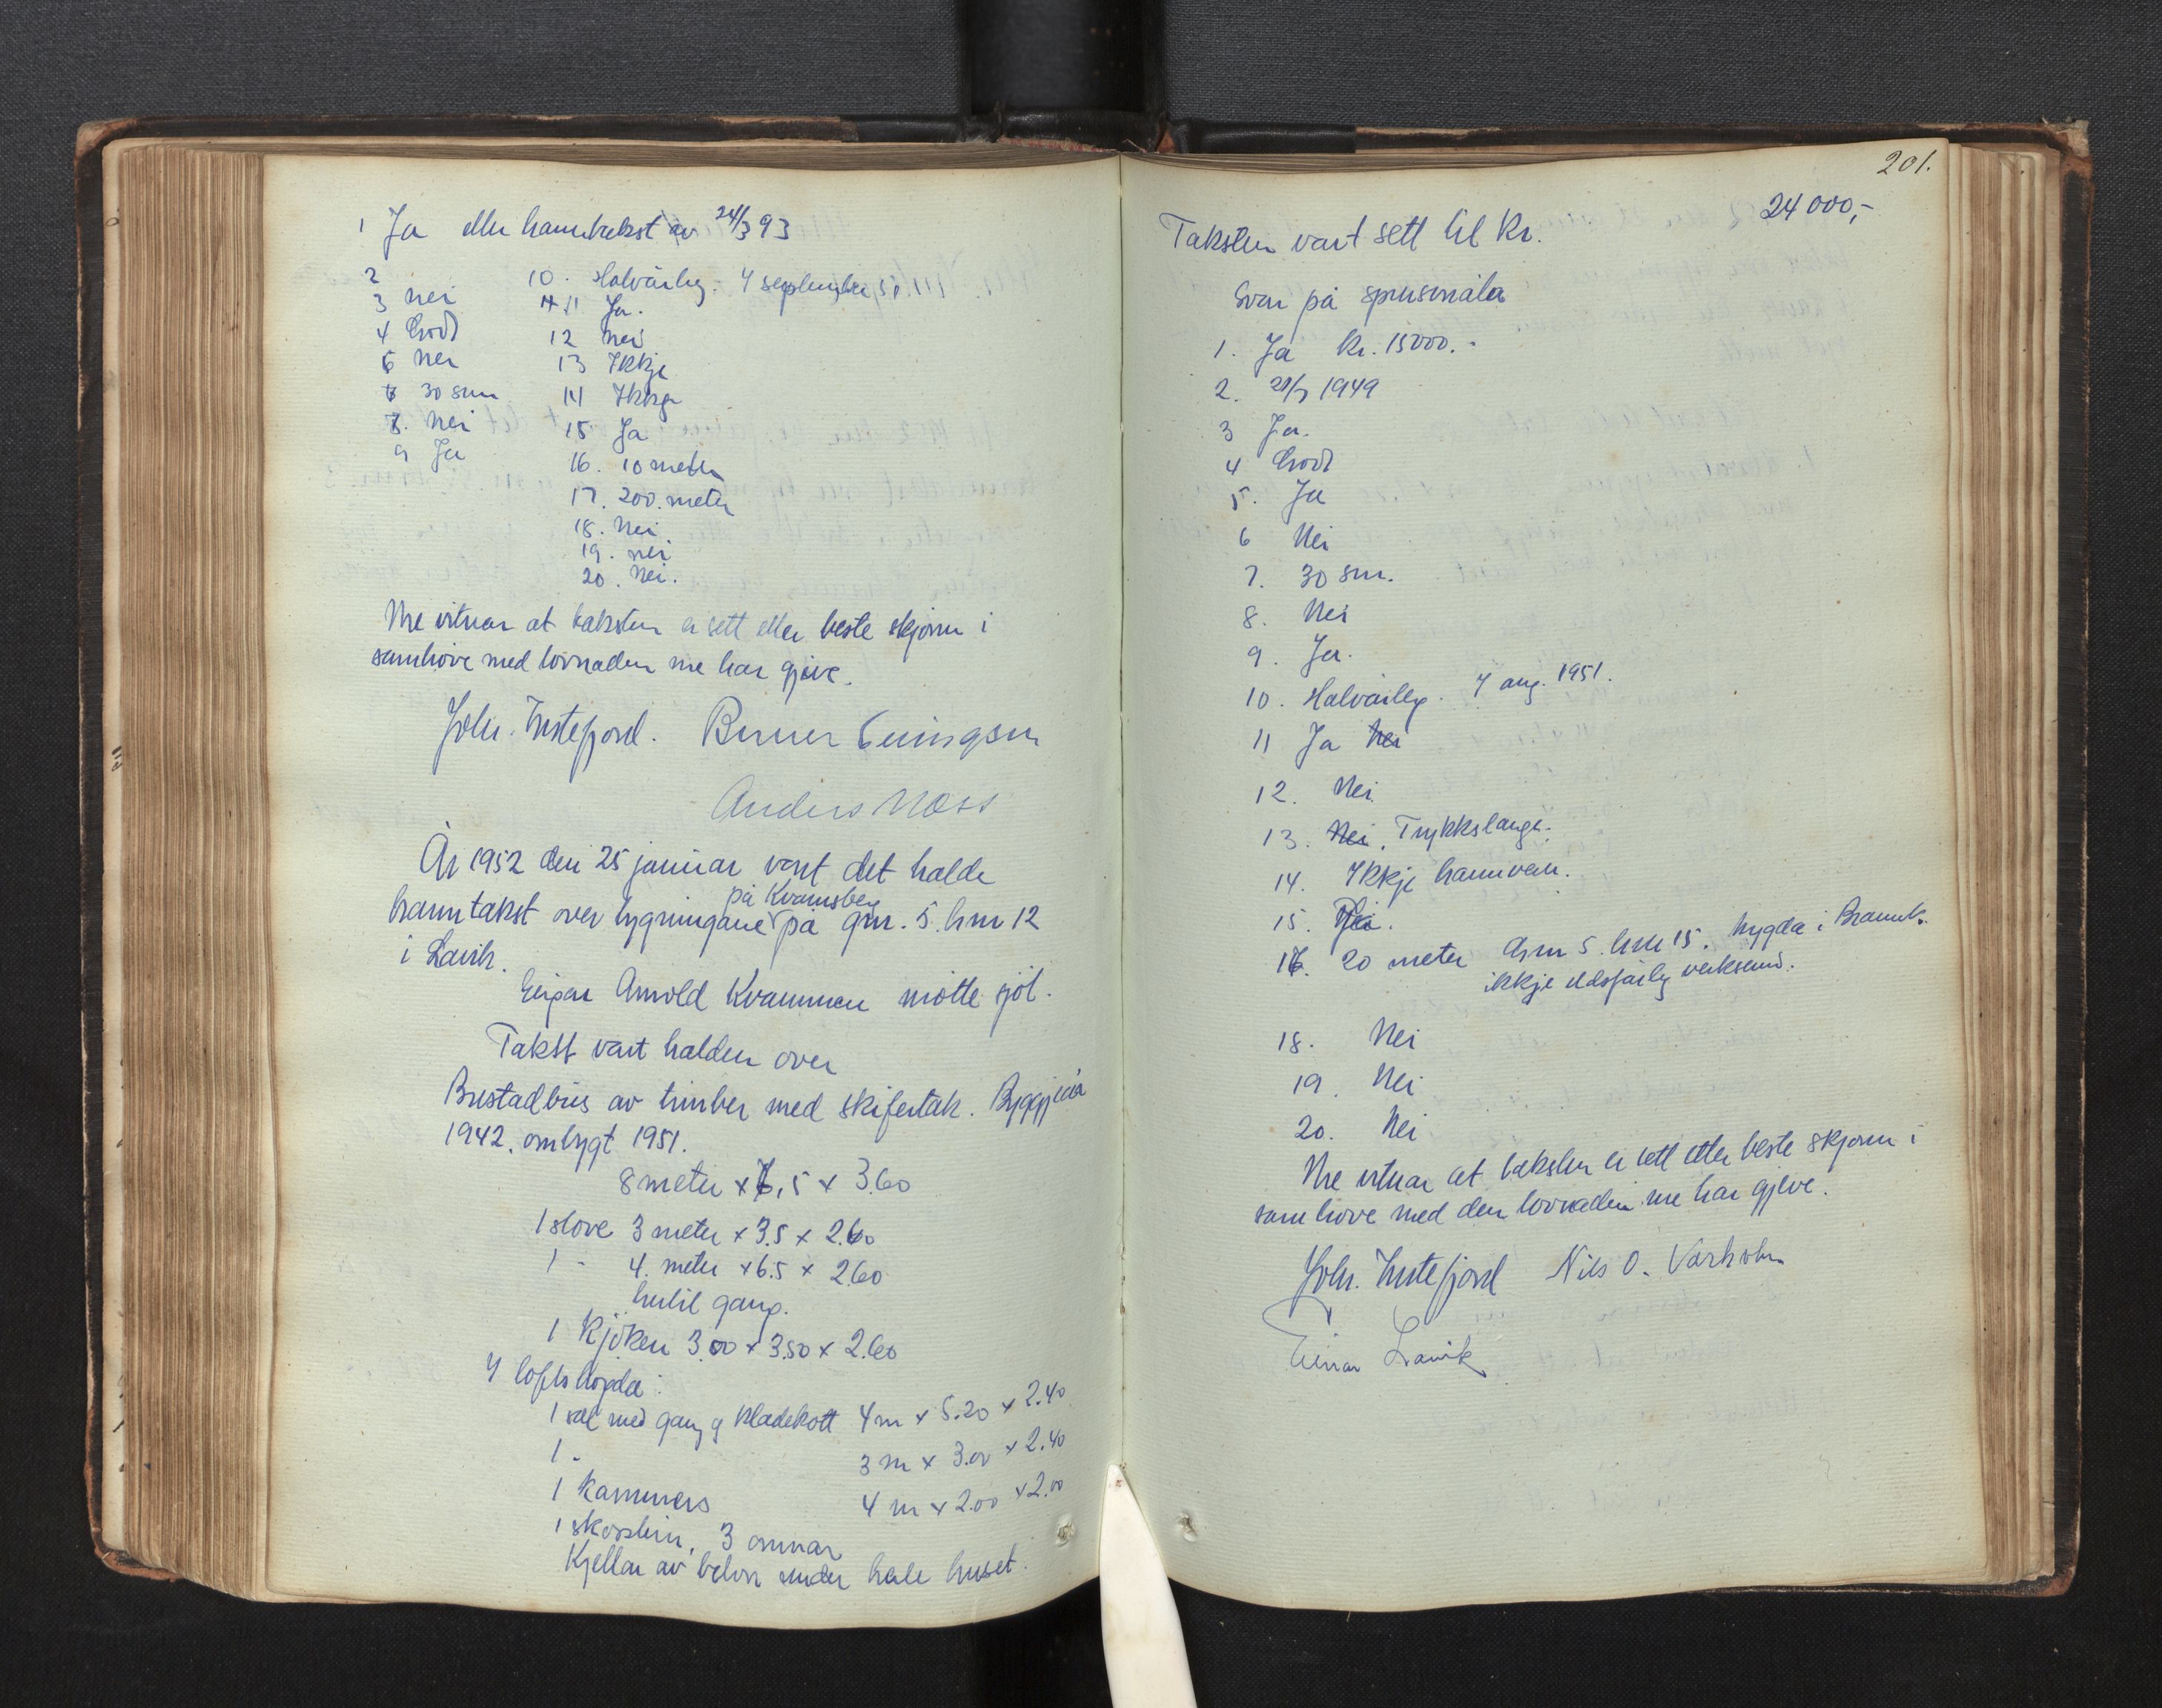 1 Ja etter branntakst av 24/3 93
2
3 Nei
4 Godt
5 Nei
6 30 sm
8. Nei
9 Ja
10. Halvårleg. 4 september 51
11 Ja.
12 Nei
13 Ikkje
14 Ikkje
15 Ja
16. 10 meter
17. 200 meter
18. Nei.
19. nei
20. Nei.
Me vitnar at taksten er sett etter beste skjønn i
samhøve med lovnaden me har gjeve.
Joh. Instefjord. Berner
Anders Næss
År 1952 den 25 januar vart det halde
på Kvamsberg
branntakst over bygningane på gnr. 5. bnr 12
i Lavik.
Eigar Arnold Kvammen møtte sjøl.
Takst vart halden over
Bustadhus av timber med skifertak. Byggjeår
1942. ombygt 1951.
8 meter x 6,5 x 3.60
1 stove 3 meter x 3.5 x 2.60
1 - 4. meter x 6.5 x 2.60
gang.
1 Kjøken 3.00 x 3.50 x 2.60
I loftshøgda:
1 sal med gang og Kladekott 4 m x 5.20 x 2.40
1 - 3 m x 3.00 x 2.40
1 Kammers 4 m x 2.00 x 2.00
1 skorstein, 3 omnar
Kjellar av betong under heile huset.
201.
Taksten vart sett til Kr. 24 000,-
Svar på spursmåla
1. Ja Kr. 15000.-
2. 21/7 1949
3 Ja.
4 Godt
5. Ja
6 Nei
7. 30 sm.
8. Nei
9. Ja.
10. Halvårleg. 4 aug. 1951.
11 Ja Nei
12. Nei
13. Nei. Trykkslange.
14. Ikkje brannvern.
15.
16. 20 meter Gnr 5. bnr 15. bygda i Brannk.
ikkje eldsfårleg verksemd.
18. Nei
19. Nei
20. Nei
Me vitnar at taksten er sett etter beste skjønn i
samhøve med den lovnaden me har gjeve.
Joh. Instefjord Nils O. Varholm
Einar Lavik